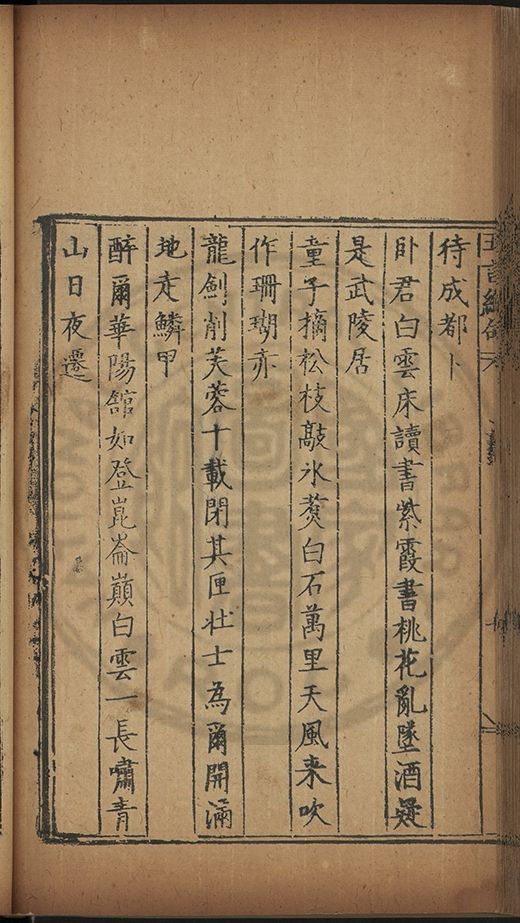 五言絕句
待成都卜
卧君白雲床讀書紫霞書桃花亂墜酒疑
是武陵居
童子摘松枝敲氷煑白石萬里天風来吹
作珊瑚赤
龍劍削芙蓉十載閉其匣壮士為爾開滿
地走鱗甲
醉爾華陽舘如登崑崙巔白雲一長嘯青
山日夜遷